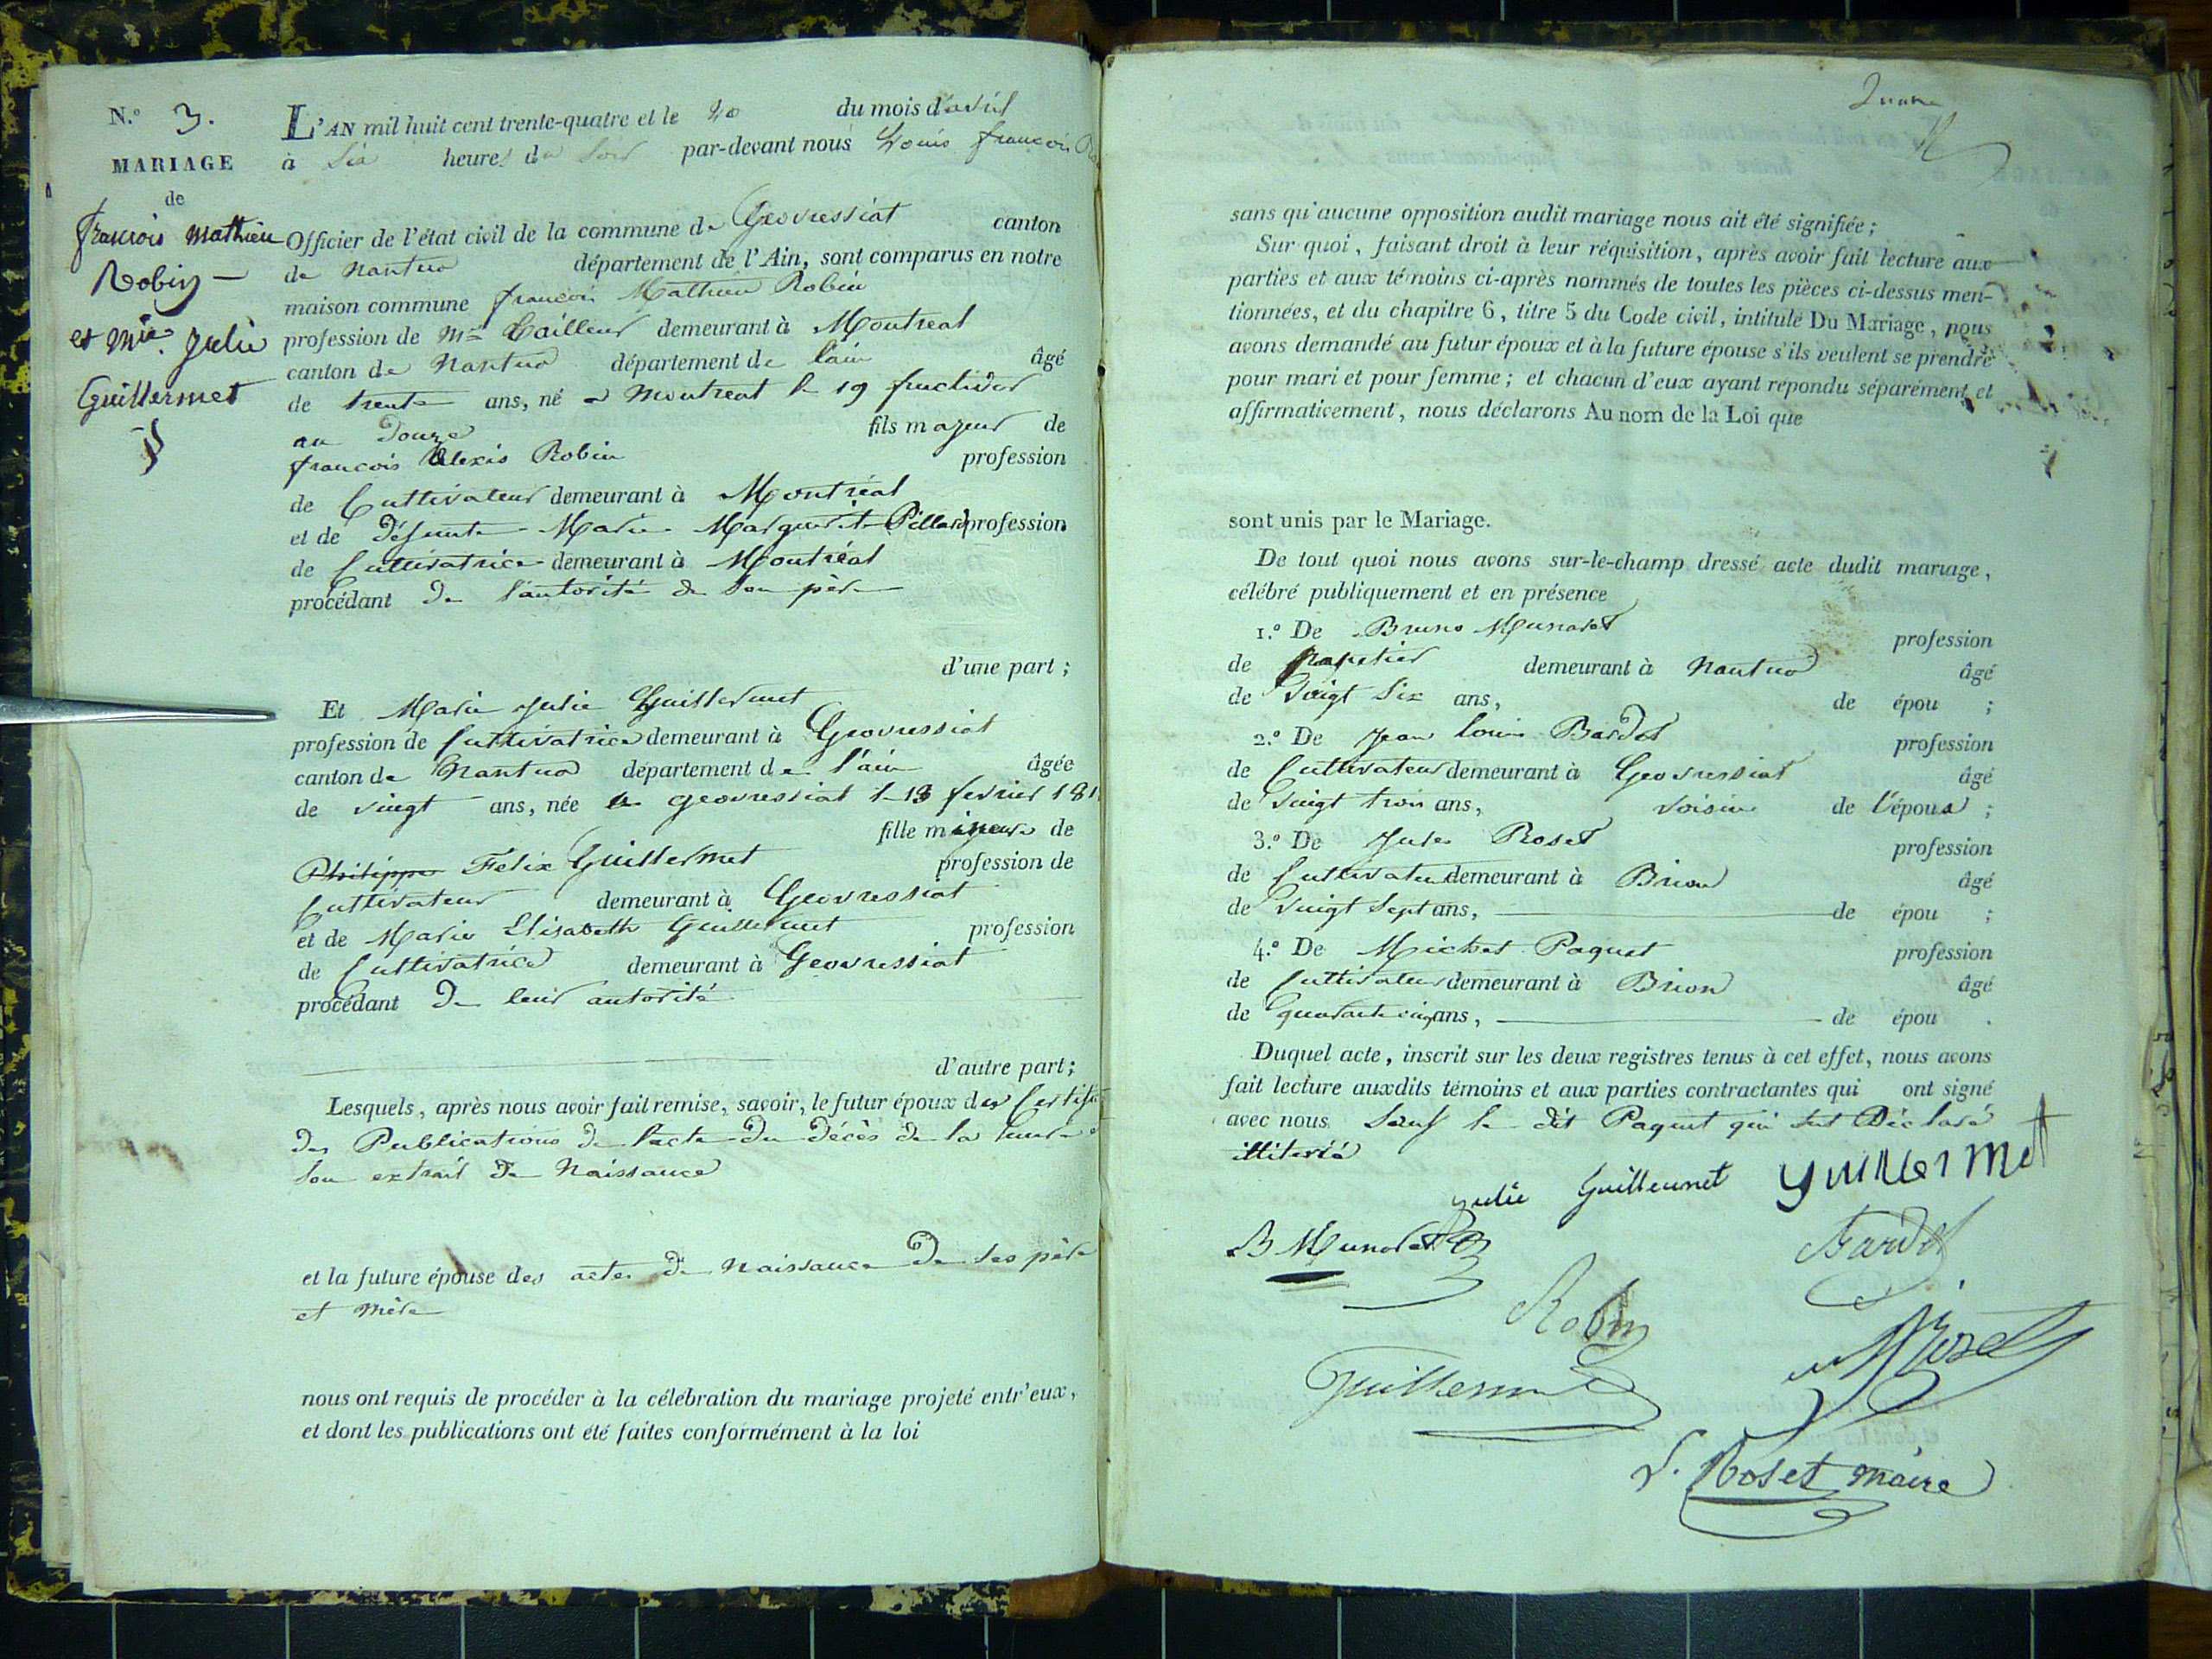 N.º 3.
MARIAGE
de
françois mathieu
Robin
et Mie. Julie
Guillermet
L'AN mil huit cent trente-quatre et le 20 du mois d'avril
à Six heures du Soir par-devant nous Louis françois
Officier de l'état civil de la commune de Geovressiat canton
de Nantua département de l'Ain, sont comparus en notre
maison commune françois Mathieu Robin
profession de Me tailleur demeurant à Montreal
canton de Nantua département de lain âgé
de trente ans, né a Montreal le 19 fructidor
an Douze fils majeur de
françois Alexis Robin profession
de Cultivateur demeurant à Montréal
et de Défunte Marie Marguerite Pillard profession
de Cultivatrice demeurant à Montréal
procédant De l'autorité de Son père
d'une part ;
Et Marie Julie Guillermet
profession de Cultivatrice demeurant à Geovressiat
canton de Nantua département de l'ain âgée
de vingt ans, née a geovressiat le 13 fevrier 181
fille mineure de
Philippe Felix Guillermet profession de
Cultivateur demeurant à Geovressiat
et de Marie Elisabeth Guillermet profession
de Cultivatrice demeurant à Geovressiat
procédant De leur autorité
d'autre part ;
Lesquels, après nous avoir fait remise, savoir, le futur époux des
des Publications De l'acte Du Décès de la
Son extrait De Naissance
et la future épouse des actes De Naissance De Ses père
et mère
nous ont requis de procéder à la célébration du mariage projeté entr'eux,
et dont les publications ont été faites conformément à la loi
sans qu'aucune opposition audit mariage nous ait été signifiée ;
Sur quoi, faisant droit à leur réquisition, après avoir fait lecture aux
parties et aux témoins ci-après nommés de toutes les pièces ci-dessus men-
tionnées, et du chapitre 6, titre 5 du Code civil, intitulé Du Mariage, nous
avons demandé au futur époux et à la future épouse s'ils veulent se prendre
pour mari et pour femme ; et chacun d'eux ayant repondu séparément et
affirmativement, nous déclarons Au nom de la Loi que
sont unis par le Mariage.
De tout quoi nous avons sur-le-champ dressé acte dudit mariage,
célébré publiquement et en présence
1.º De Bruno Munaret profession
de Papetier demeurant à Nantua âgé
de Vingt Six ans, de épou ;
2.º De Jean louis Bardet profession
de Cultivateur demeurant à Geovressiat âgé
de Vingt trois ans, Voisin de l'époux ;
3.º De Jules Roset profession
de Cultivateur demeurant à Brion âgé
de Vingt Sept ans, de épou ;
4.º De Michel Paquet profession
de Cultivateur demeurant à Brion âgé
de quarante cinq ans, de épou .
Duquel acte, inscrit sur les deux registres tenus à cet effet, nous avons
fait lecture auxdits témoins et aux parties contractantes qui ont signé
avec nous Sauf le dit Paquet qui Sest Déclaré
illiteré
julie Guillermet guillermet
B Munaret Bardet
Robin
Guillermet Roset
L. Roset maire